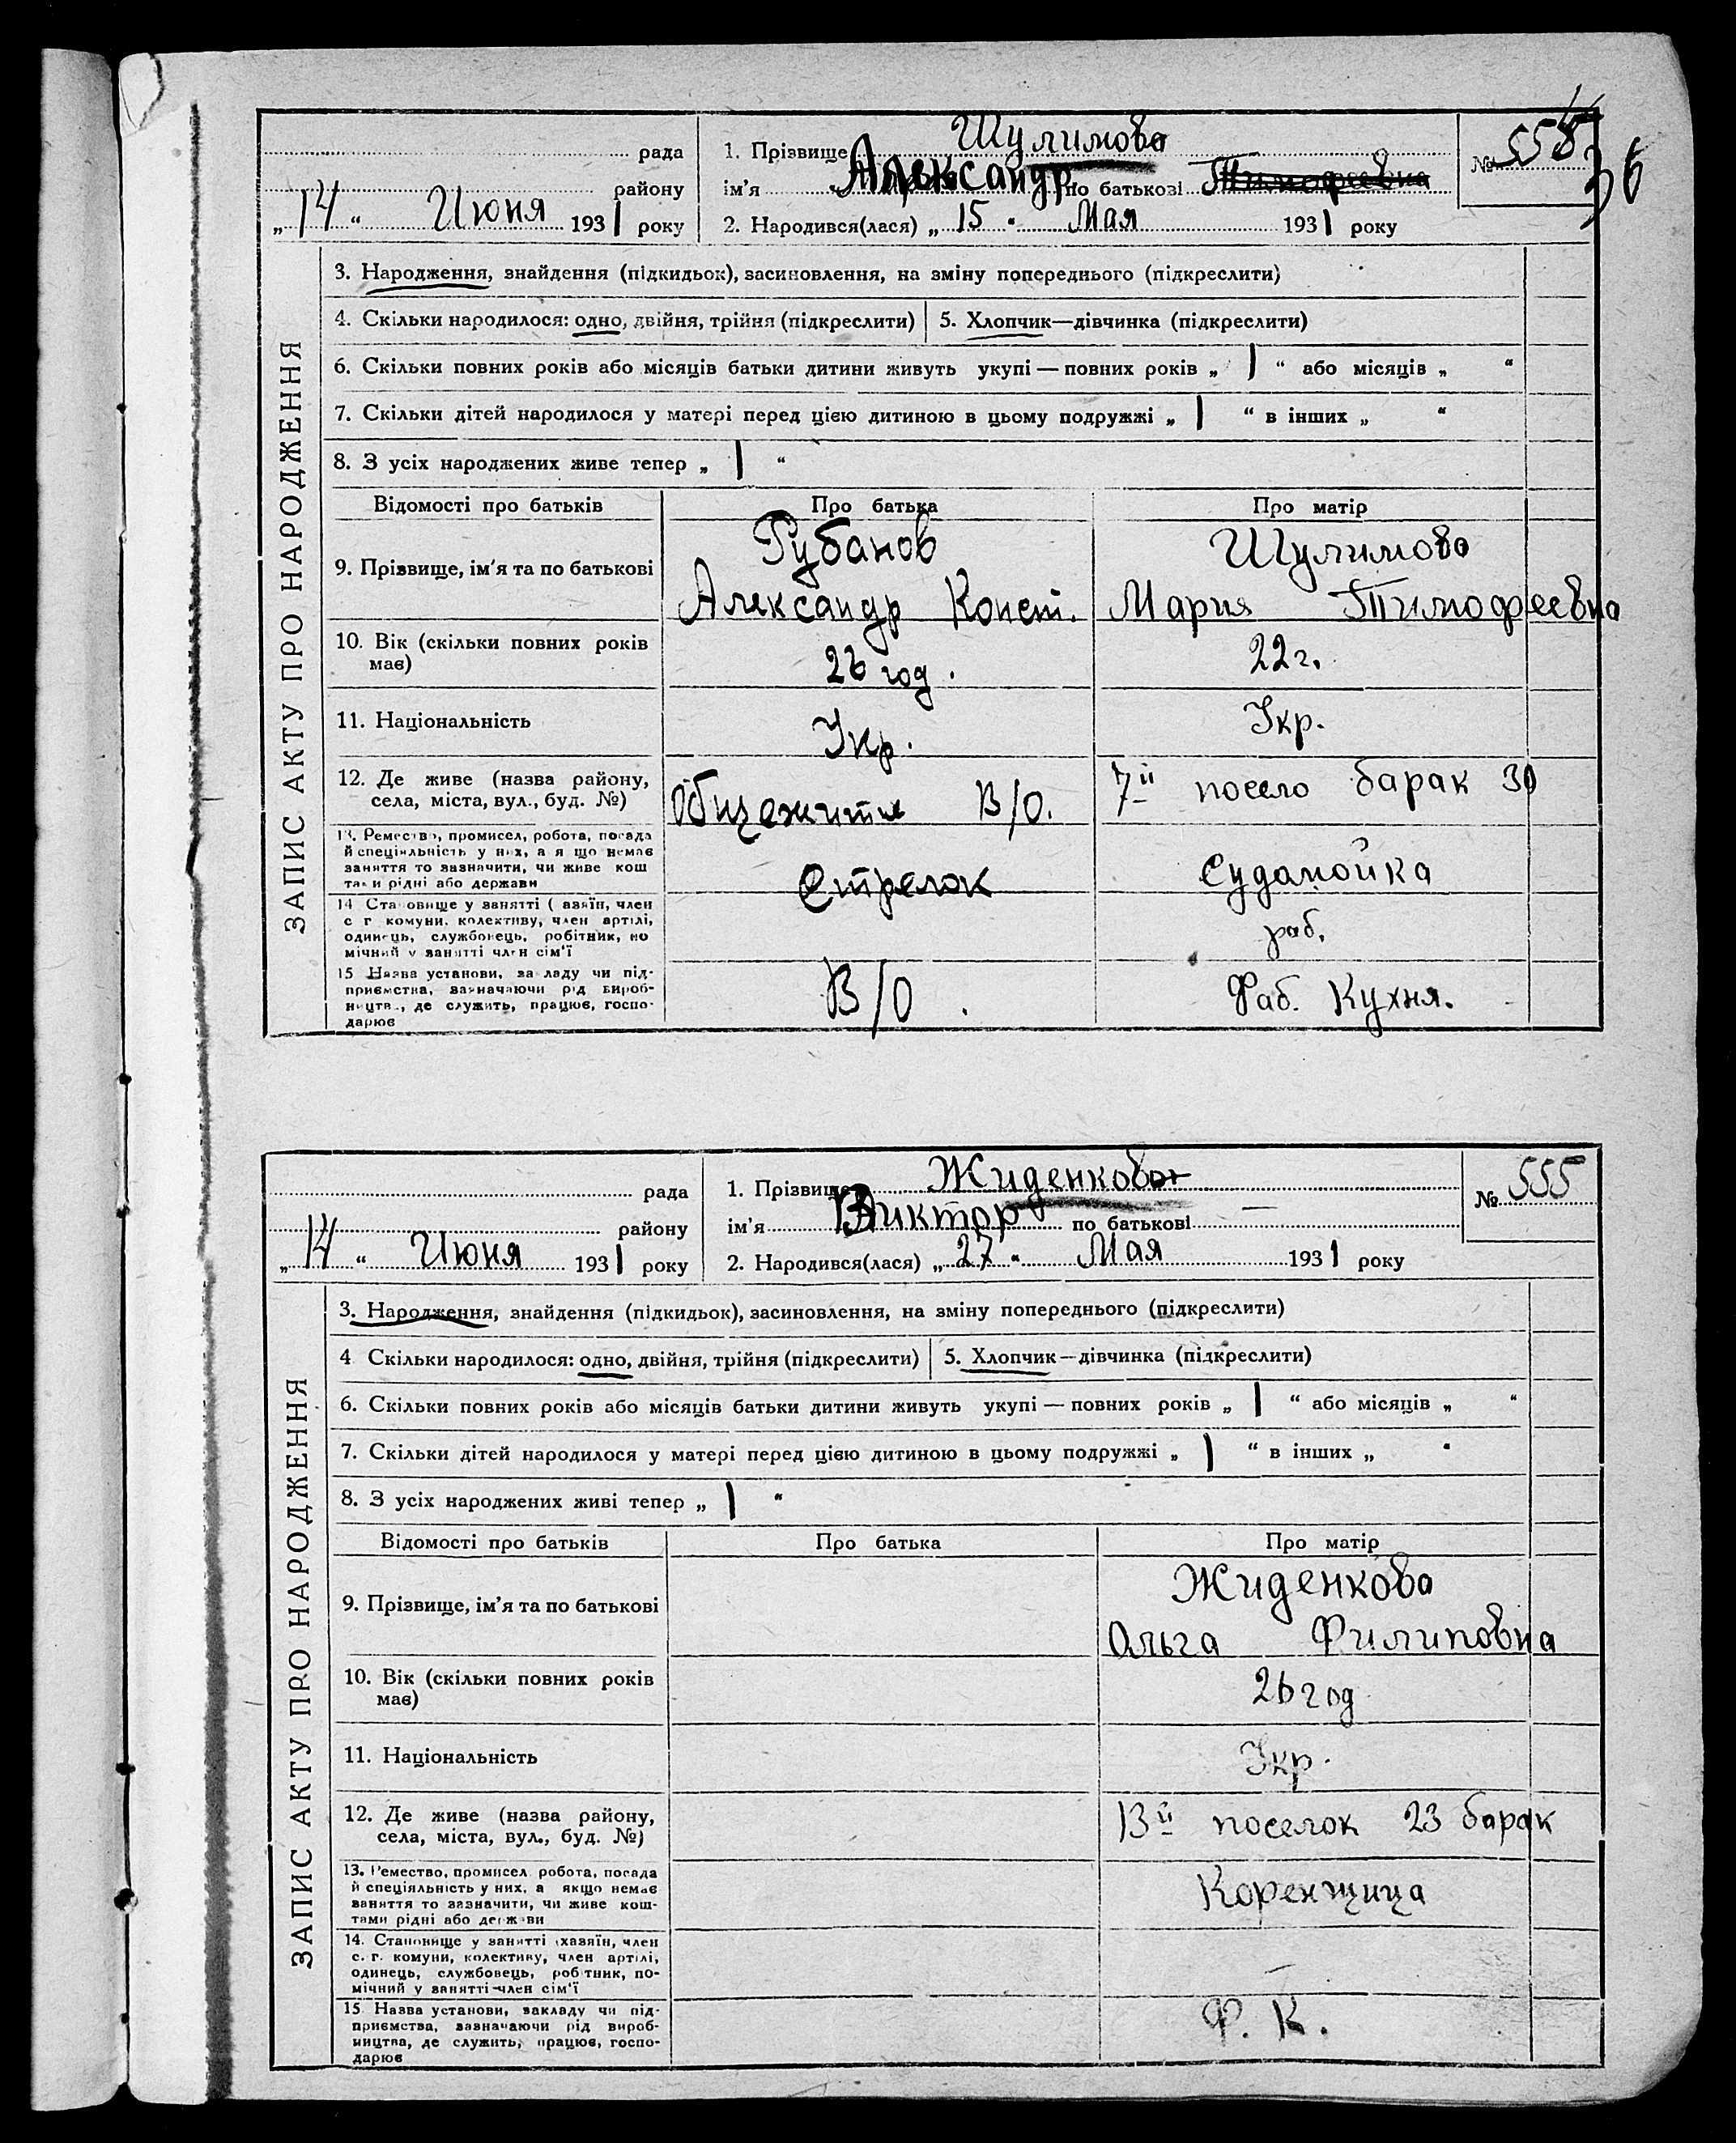 36
рада
району
„ 14 “ Июня 1931 року
1. Прізвище Шулимова
ім'я Александр по батькові Тимофеевна
2. Народився(лася) „ 15 “ Мая 1931 року
№
ЗАПИС АКТУ ПРО НАРОДЖЕННЯ
3. Народження, знайдення (підкидьок), засиновлення, на зміну попереднього (підкреслити)
4. Скільки народилося: одно, двійня, трійня (підкреслити)
5. Хлопчик—дівчинка (підкреслити)
6. Скільки повних років або місяців батьки дитини живуть укупі — повних років „ 1 “ або місяців „ “
7. Скільки дітей народилося у матері перед цією дитиною в цьому подружжі „ 1 “ в інших „ “
8. З усіх народжених живе тепер „ 1 “
Відомості про батьків
Про батька
Про матір
9. Прізвище, ім'я та по батькові
Рубанов
Александр Конст.
Шулимова
Мария Тимофеевна
10. Вік (скільки повних років
має)
26 год.
22 г.
11. Національність
Укр.
Укр.
12. Де живе (назва району,
села, міста, вул., буд. №)
Общежития В/О.
7й посело барак 30
13. Ремество, промисел, робота, посада
й спеціяльність у них, а якщо немає
заняття то зазначити, чи живе кош
тами рідні або держави
Стрелок
Судомойка
14 Становище у занятті (хазяїн, член
с г комуни, колективу, член артілі,
одинець, службовець, робітник, по
мічний у занятті член сім'ї
раб.
15 Назва установи, закладу чи під-
приємства, зазначаючи рід вироб-
ництв., де служить, працює, госпо-
дарює
В/О.
Фаб. Кухня.
рада
району
„ 14 “ Июня 1931 року
1. Прізвище Жиденкова
ім'я Виктор по батькові —
2. Народився(лася) „ 27 “ Мая 1931 року
№ 555
ЗАПИС АКТУ ПРО НАРОДЖЕННЯ
3. Народження, знайдення (підкидьок), засиновлення, на зміну попереднього (підкреслити)
4 Скільки народилося: одно, двійня, трійня (підкреслити)
5. Хлопчик—дівчинка (підкреслити)
6. Скільки повних років або місяців батьки дитини живуть укупі — повних років „ 1 “ або місяців „ “
7. Скільки дітей народилося у матері перед цією дитиною в цьому подружжі „ 1 “ в інших „ “
8. З усіх народжених живі тепер „ 1 “
Відомості про батьків
Про батька
Про матір
9. Прізвище, ім'я та по батькові
Жиденкова
Ольга Филиповна
10. Вік (скільки повних років
має)
26 год
11. Національність
Укр.
12. Де живе (назва району,
села, міста, вул., буд. №)
13й поселок 23 барак
13. Ремество, промисел робота, посада
й спеціяльність у них, а якщо немає
заняття то зазначити, чи живе кош-
тами рідні або держави
Коренщица
14. Становище у занятті (хазяїн, член
с. г. комуни, колективу, член артілі,
одинець, службовець, робітник, по-
мічний у занятті-член сім'ї
—
15 Назва установи, закладу чи під-
приємства, зазначаючи рід вироб-
ництва, де служить, працює, госпо-
дарює
Ф. К.